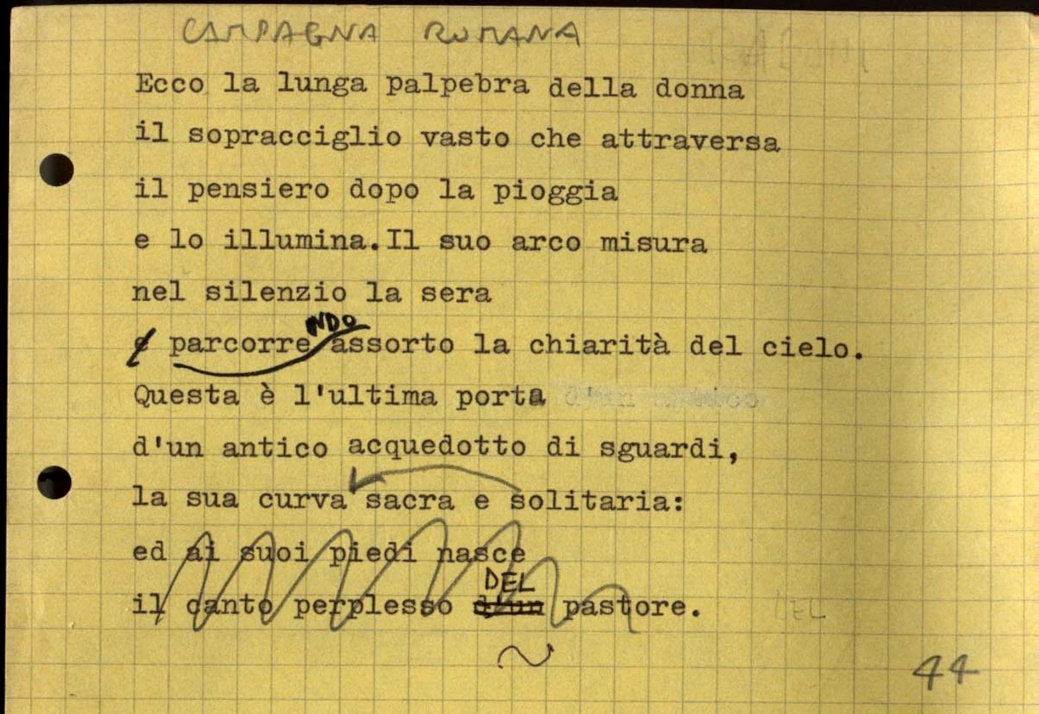 CAMPAGNA ROMANA
Ecco la lunga palpebra della donna
il sopracciglio vasto che attraversa
il pensiero dopo la pioggia
e lo illumina.Il suo arco misura
nel silenzio la sera
NDO
e parcorre assorto la chiarità del cielo.
Questa è l'ultima porta
d'un antico acquedotto di sguardi,
la sua curva sacra e solitaria:
ed ai suoi piedi nasce
DEL
il canto perplesso d'un pastore.
DEL
44